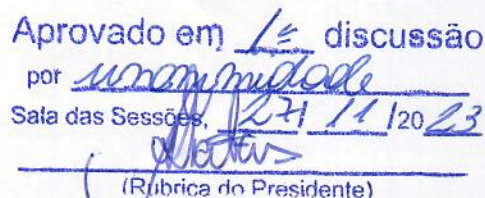 Aprovado em 1ª discussão
por unanimidade
Sala das Sessões, 27/ 11 /20 23
(Rubrica do Presidente)